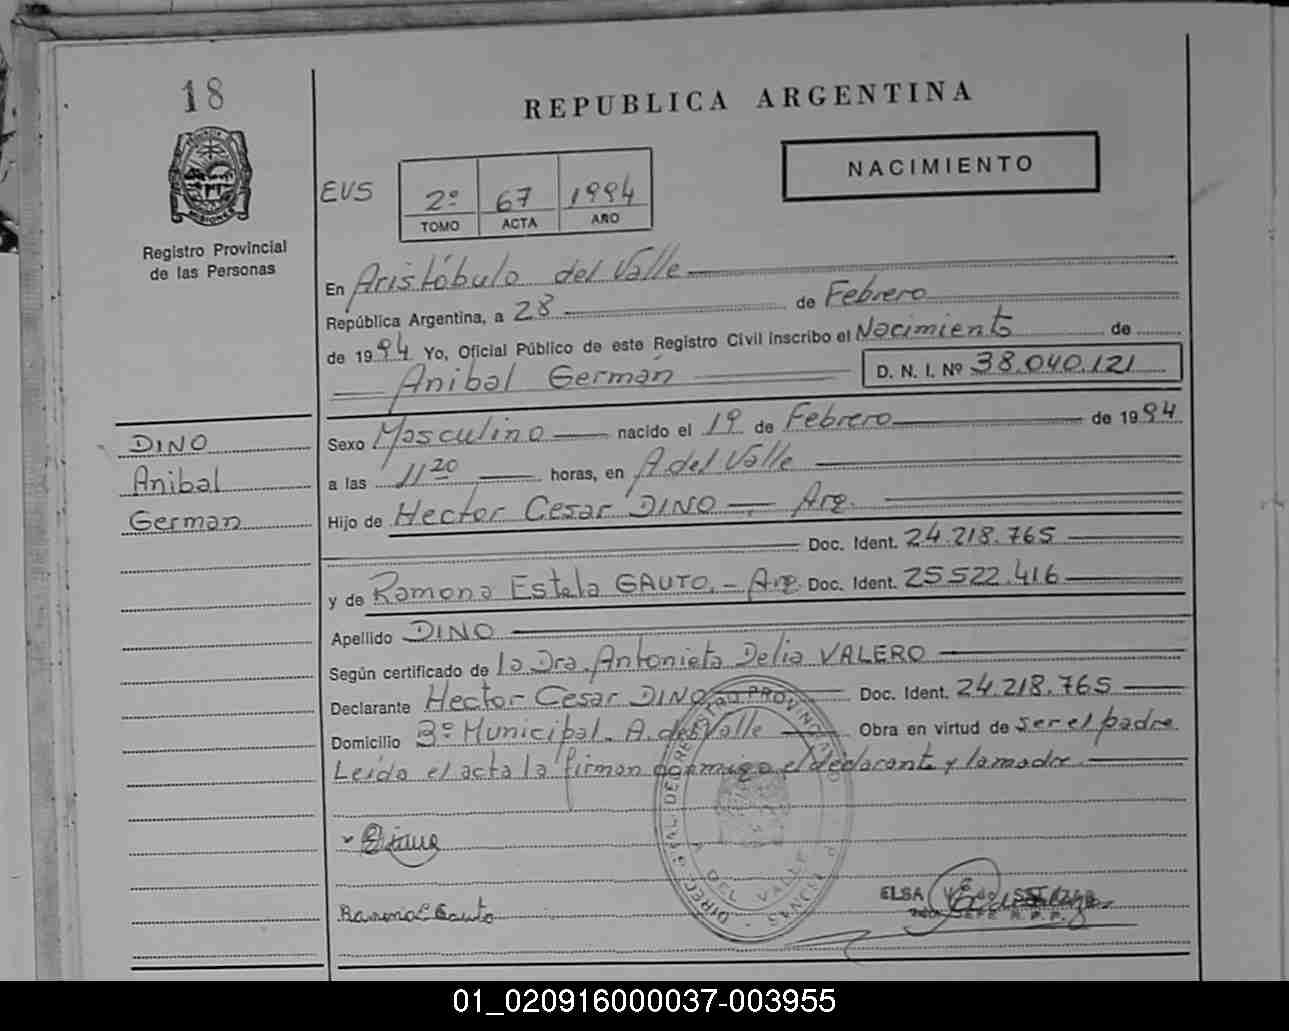 18
REPUBLICA ARGENTINA
NACIMIENTO
PROVINCIA
MISIONES
Registro Provincial
de las Personas
EVS
2º 67 1994
TOMO ACTA AÑO
En Aristóbulo del Valle
República Argentina, a 28 de Febrero
de 1994 Yo, Oficial Público de este Registro Civil inscribo el Nacimiento de
Anibal Germán D. N. I. Nº 38.040.121
DINO
Anibal
German
Sexo Masculino nacido el 19 de Febrero de 1994
a las 11 20 horas, en A del Valle
Hijo de Hector Cesar DINO - Arg.
Doc. Ident. 24.218.765
y de Ramona Estela GAUTO. - Arg. Doc. Ident. 25522.416
Apellido DINO
Según certificado de la Dra. Antonieta Delia VALERO
Declarante Hector Cesar DINO Doc. Ident. 24.218.765
Domicilio Bº Municipal. A. del Valle Obra en virtud de ser el padre
Leída el acta la firman conmigo el declarante y la madre.
DEL VALLE
Ramona E Gauto
ELSA
JEFE R.P.P.
01_020916000037-003955